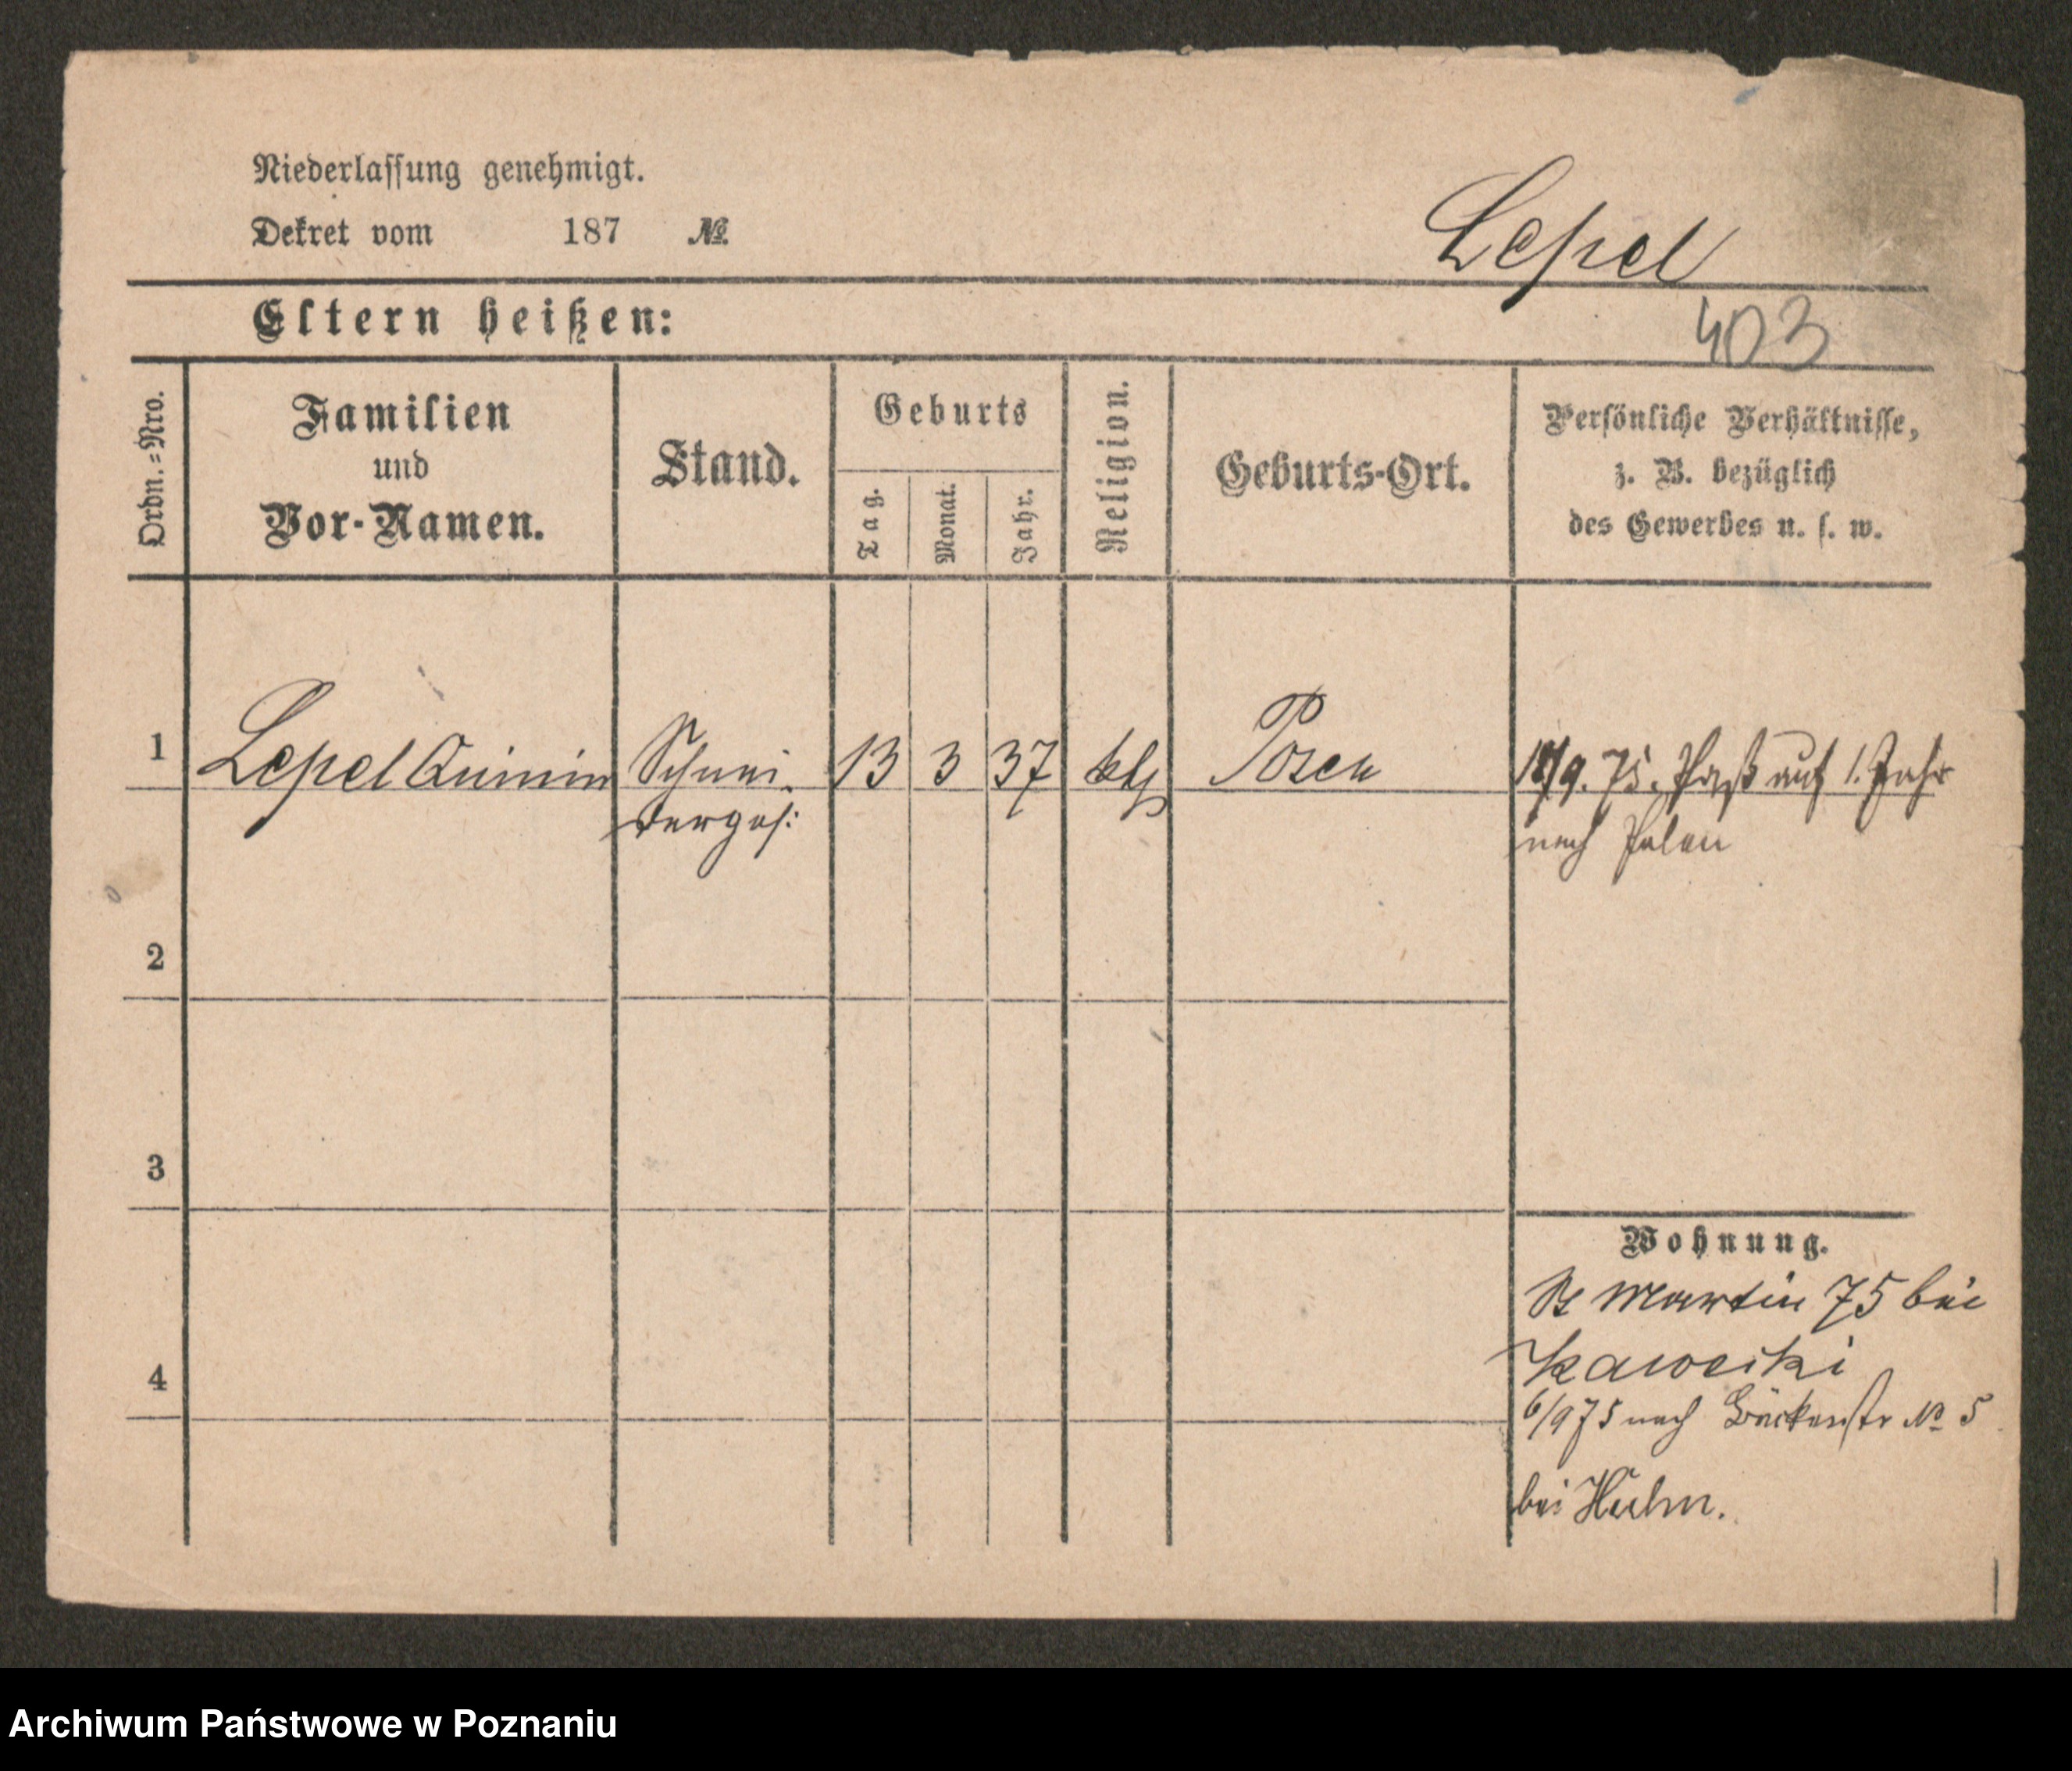 Niederlassung genehmigt.
Dekret vom 187 №
Lepel
Eltern heißen:
403
Ordn.-Nro.
Familien
und
Vor-Namen.
Stand.
Geburts
Tag.
Monat.
Jahr.
Religion.
Geburts-Ort.
Persönliche Verhältnisse,
z. B. bezüglich
des Gewerbes u. s. w.
1 Lepel Schnei- 13 3 37 kth Posen /9. 75. Paß auf 1. Jahr
derges: nach Polen
2
3
Wohnung.
St Martin 75 bei
Kawecki
4
6/9 75 nach Bäckerstr No 5
bei Huhn.
Archiwum Państwowe w Poznaniu